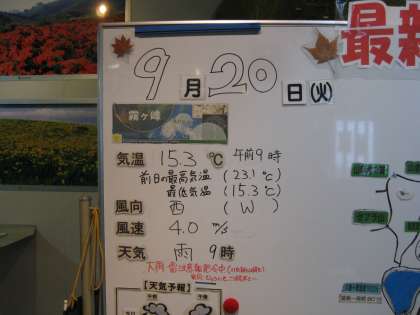 最新
9月20日(火)
霧ヶ峰
気温 15.3℃ 午前9時
前日の最高気温 (23.1℃)
最低気温 (15.3℃)
風向 西 (W)
風速 4.0 m/s
天気 雨 9時
【天気予報】
午前 午後